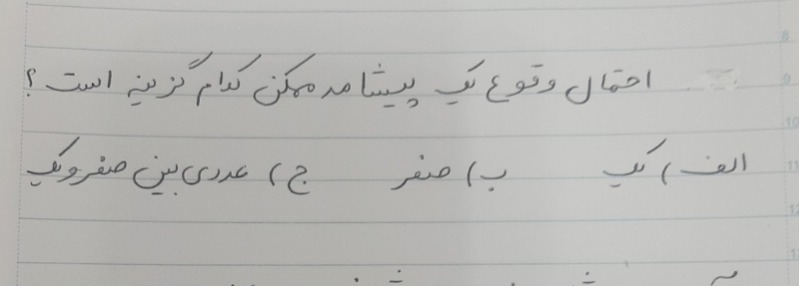 احتمال وقوع یک پیشامد ممکن کدام گزینه است؟
الف) یک ب) صفر ج) عددی بین صفر و یک